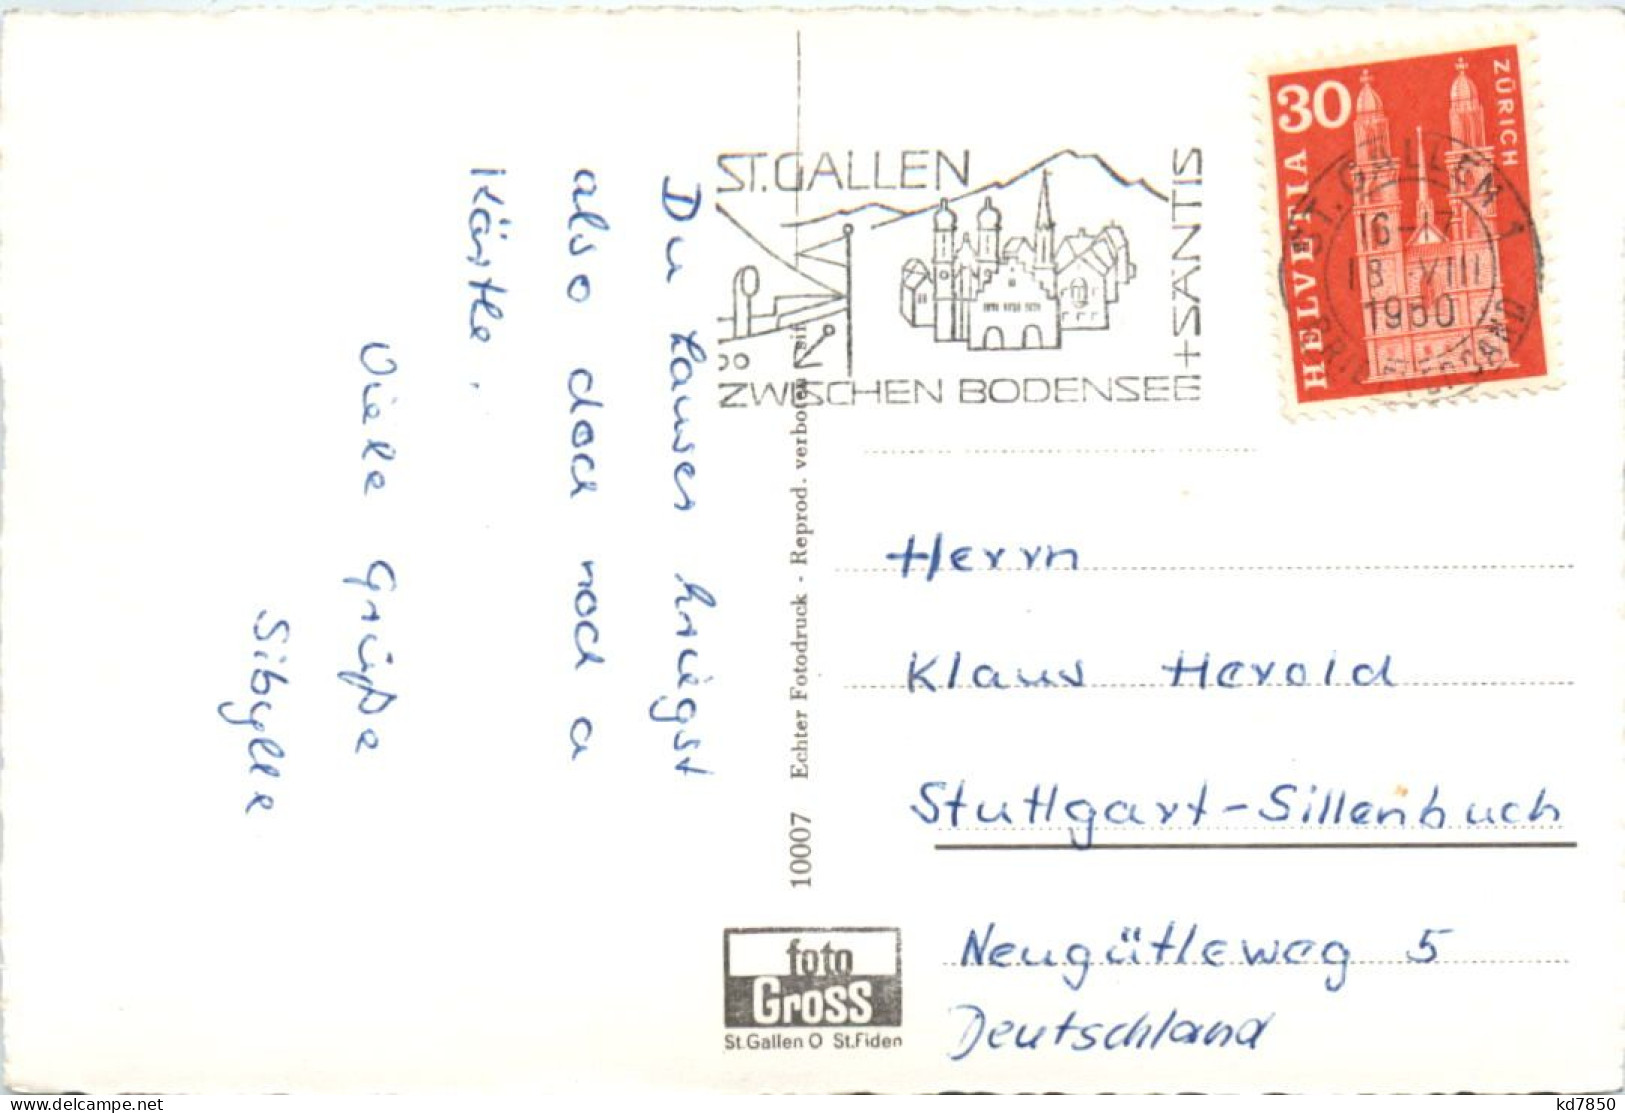 Du Lauser kriegst
also doch noch a
Kärtle.
Viele Grüße
Sibylle
ST.GALLEN
ZWISCHEN BODENSEE
+ SÄNTIS
30
HELVETIA
ZÜRICH
ST. GALLEN 1
16-17
18 VIII
1960
BRIEFVERSAND
Herrn
Klaus Herold
Stuttgart-Sillenbuch
Neugütleweg 5
Deutschland
10007 Echter Fotodruck - Reprod. verboten
foto
Gross
St.Gallen O St.Fiden
kd7850